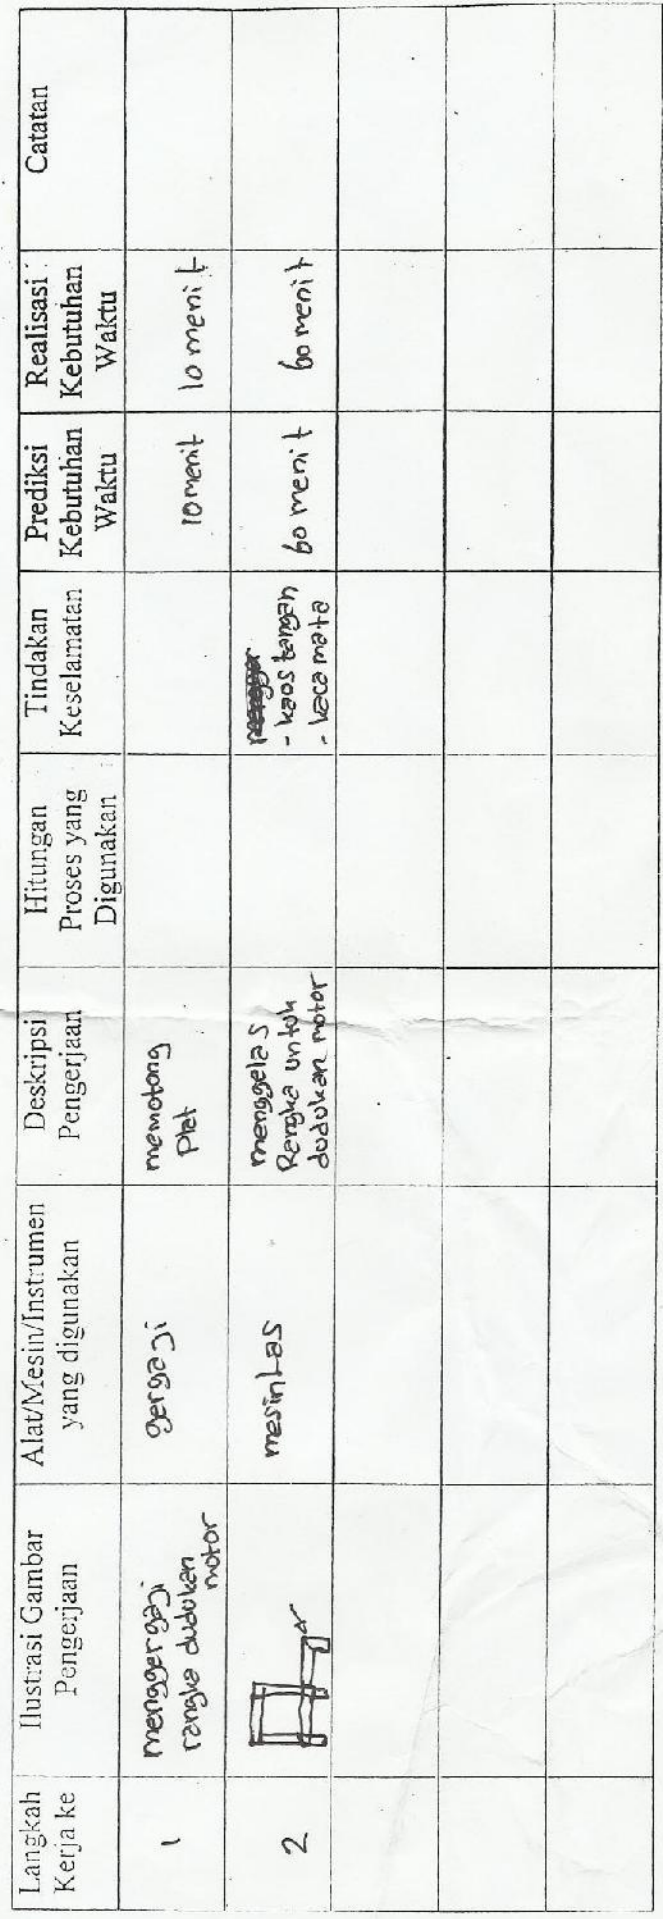 Langkah
Kerja ke
Ilustrasi Gambar
Pengerjaan
Alat/Mesin/Instrumen
yang digunakan
Deskripsi
Pengerjaan
Hitungan
Proses yang
Digunakan
Tindakan
Keselamatan
Prediksi
Kebutuhan
Waktu
Realisasi
Kebutuhan
Waktu
Catatan
1
menggergaji
rangka dudukan
motor
gergaji
memotong
Plat
10 menit
10 menit
2
mesin Las
menggelas
Rangka untuk
dudukan motor
- kaos tangan
- kaca mata
60 menit
60 menit